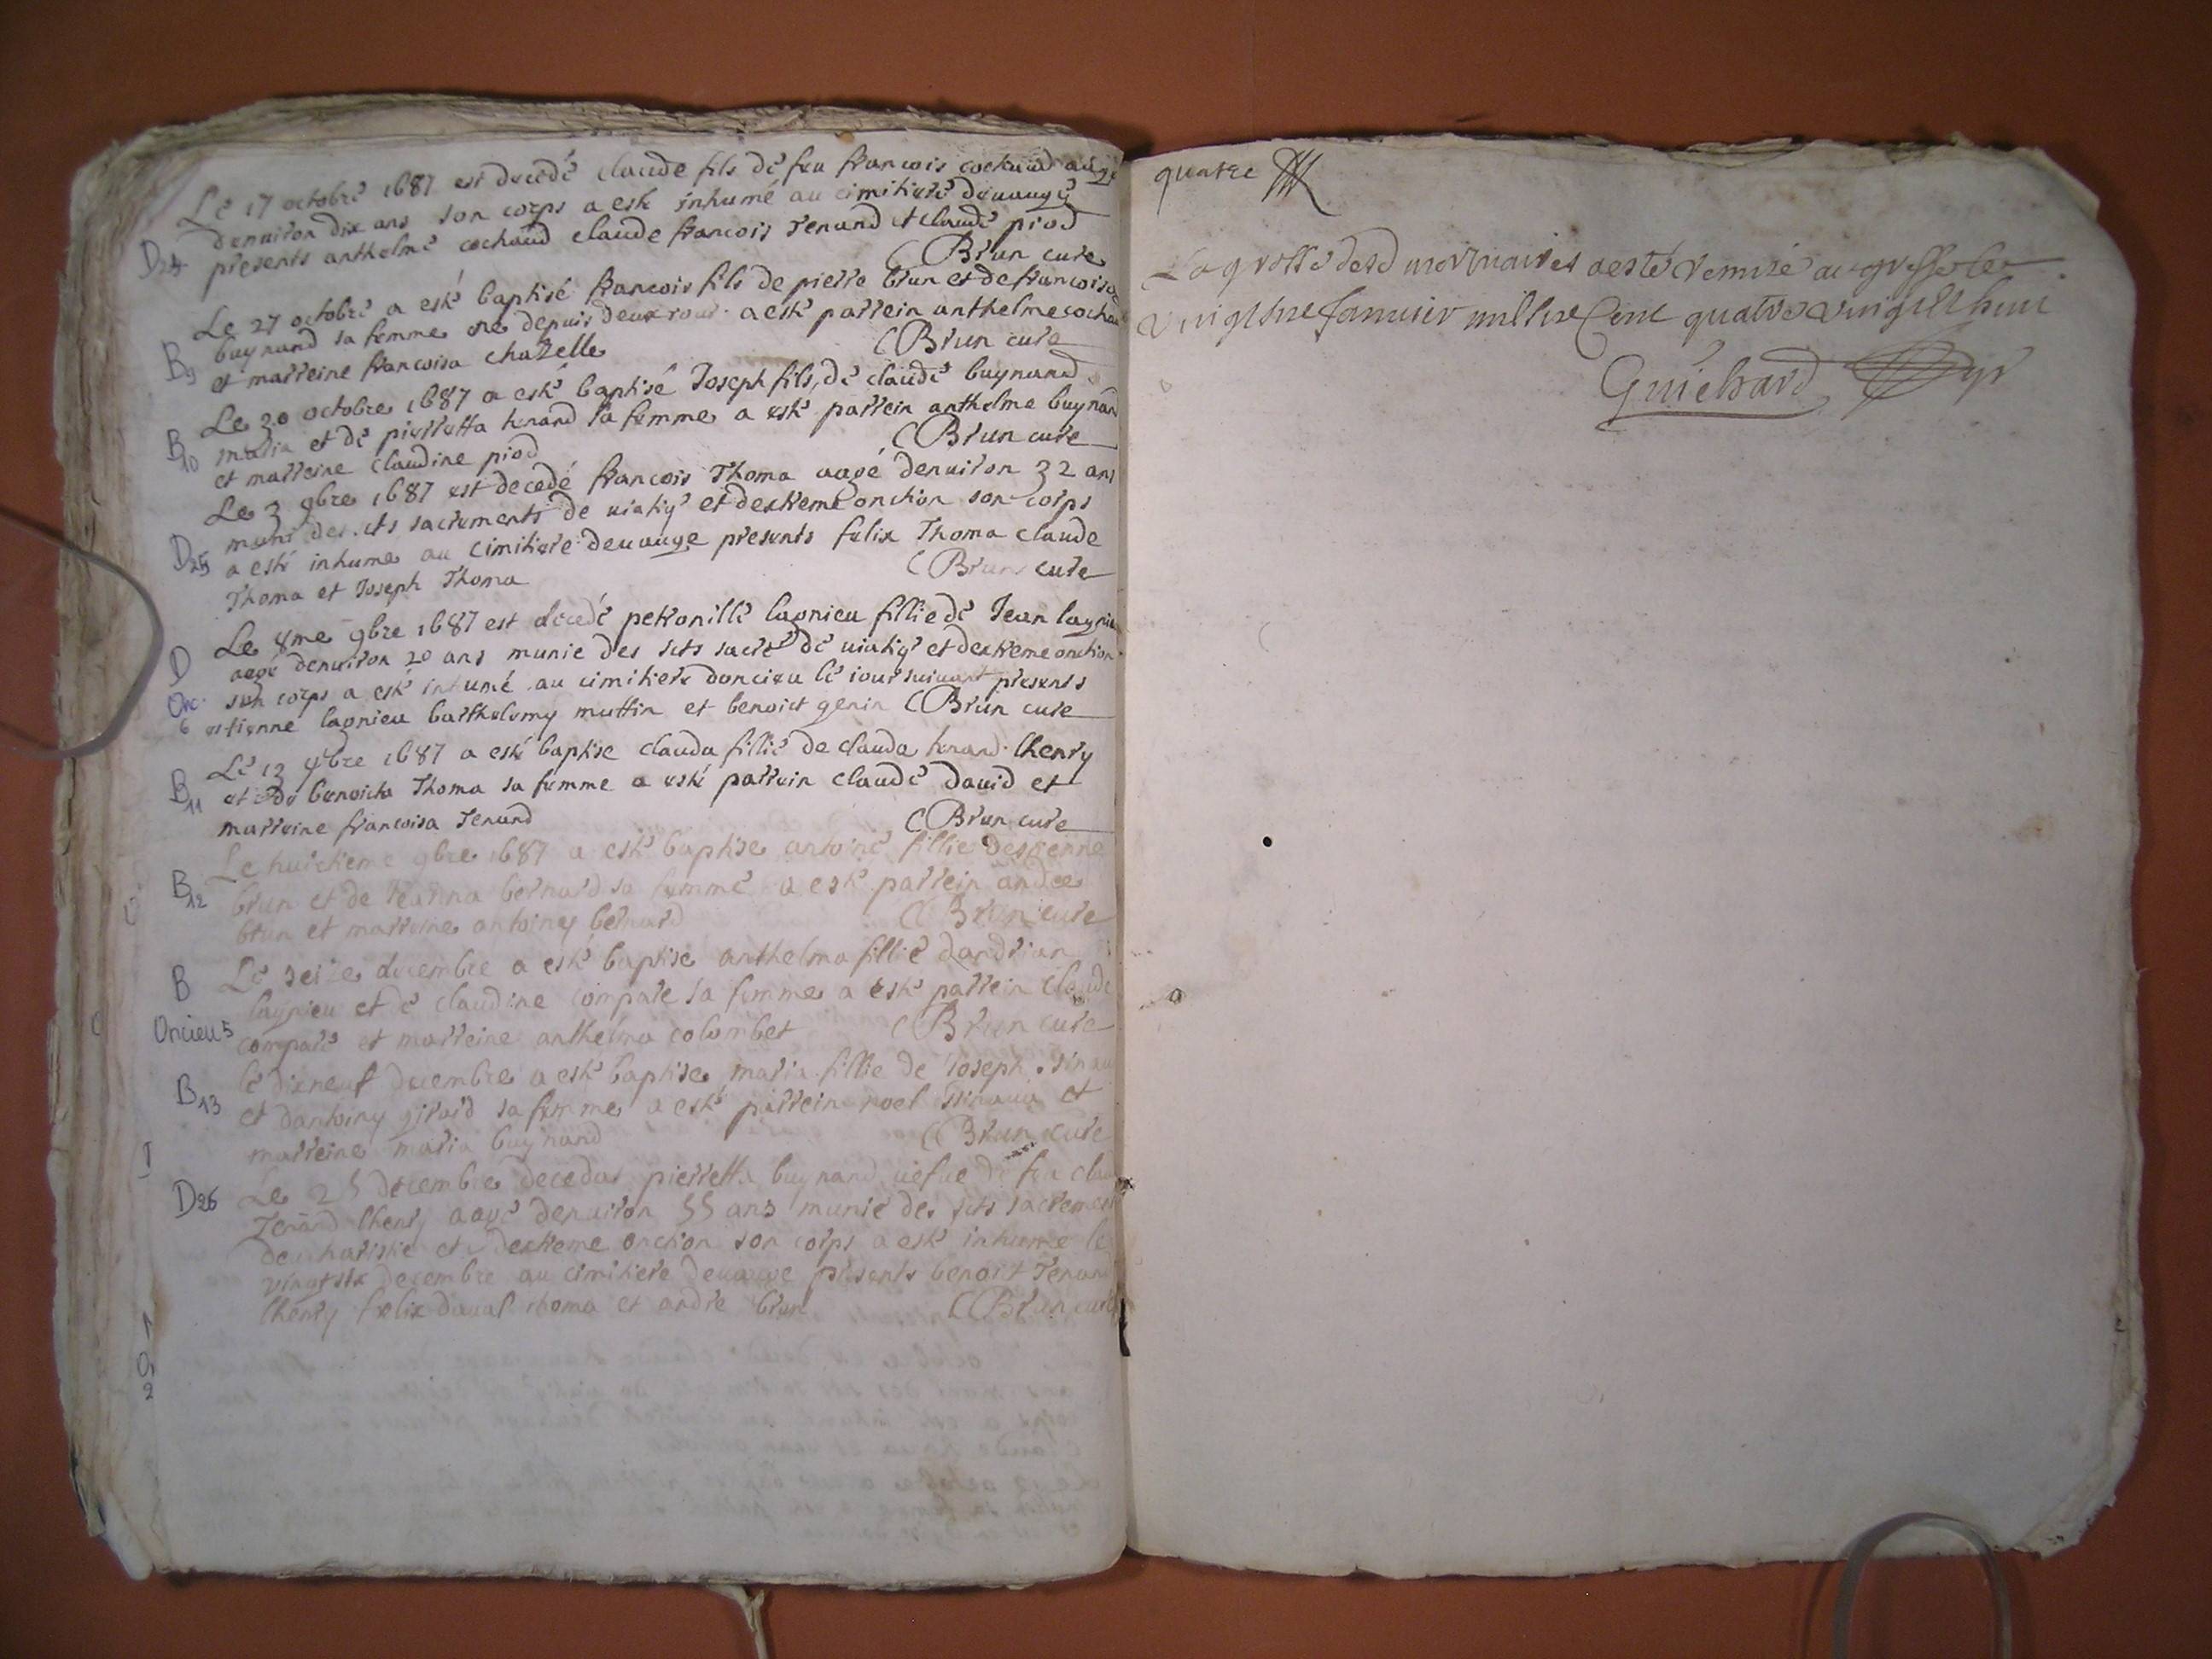 Le 17 octobre 1687 est decedé claude fils de feu francois cochaud aagé
D24 denuiron dix ans son corps a esté inhumé au cimitiere deuauge
presents anthelme cochaud claude francois Tenand et claude piod
C Brun cure
Le 27 octobre a esté baptisé francois fils de pierre brun et de francoise
B9 buynand sa femme né depuis deux iours a esté parrein anthelme cochaud
et marreine francoisa chazelle C Brun cure
Le 30 octobre 1687 a esté baptisé Joseph fils de claude buynand
B10 matia et de pierretta tenand sa femme a esté parrein anthelme buynand
et marreine claudine piod C Brun cure
Le 3 9bre 1687 est decedé francois Thoma aagé denuiron 32 ans
muni des sts sacrements de uiatiq et dextreme onction son corps
D25 a esté inhume au cimitiere deuauge presents felix Thoma claude
Thoma et Joseph Thoma C Brun cure
Le 8me 9bre 1687 est decedé petronille lagnieu fillie de Jean lagnieu
D aagé denuiron 20 ans munie des sts sacre de uiatiq et dextreme onction
Onc. son corps a esté inhumé au cimitiere doncieu le iour suiuant presents
6 estienne lagnieu barthelemy muttin et benoict genin C Brun cure
Le 13 9bre 1687 a esté baptise clauda fillie de claude tenand lhenry
B11 et de benoicta Thoma sa femme a esté parrein claude dauid et
marreine francoisa Tenand C Brun cure
Le huictieme 9bre 1687 a esté baptise antoine fillie destienne
B12 brun et de Jeanna bernard sa femme a esté parrein andre
brun et marreine antoiney bernard C Brun cure
B Le seize decembre a esté baptise anthelma fillie dandrian
lagnieu et de claudine compare sa femme a esté parrein claude
Oncieu 5 compare et marreine anthelma colombet C Brun cure
le dixneuf decembre a esté baptise maria fillie de Joseph
B13 et dantoiny girard sa femme a esté parrein noel et
marreine maria buynand C Brun cure
D26 Le 25 decembre deceda pierretta buynand uefue de feu claude
Tenand lhenry aagé denuiron 55 ans munie des sts sacrements
deucharistie et dextreme onction son corps a esté inhume le
vingt six decembre au cimitiere deuauge presents benoit Tenand
lhenry felix dauat thoma et andre brun C Brun cure
quatre
La grosse desd mortuaires a esté remise au greffe le
vingtsme januier mil six cent quatre vingt et huit
Guichard